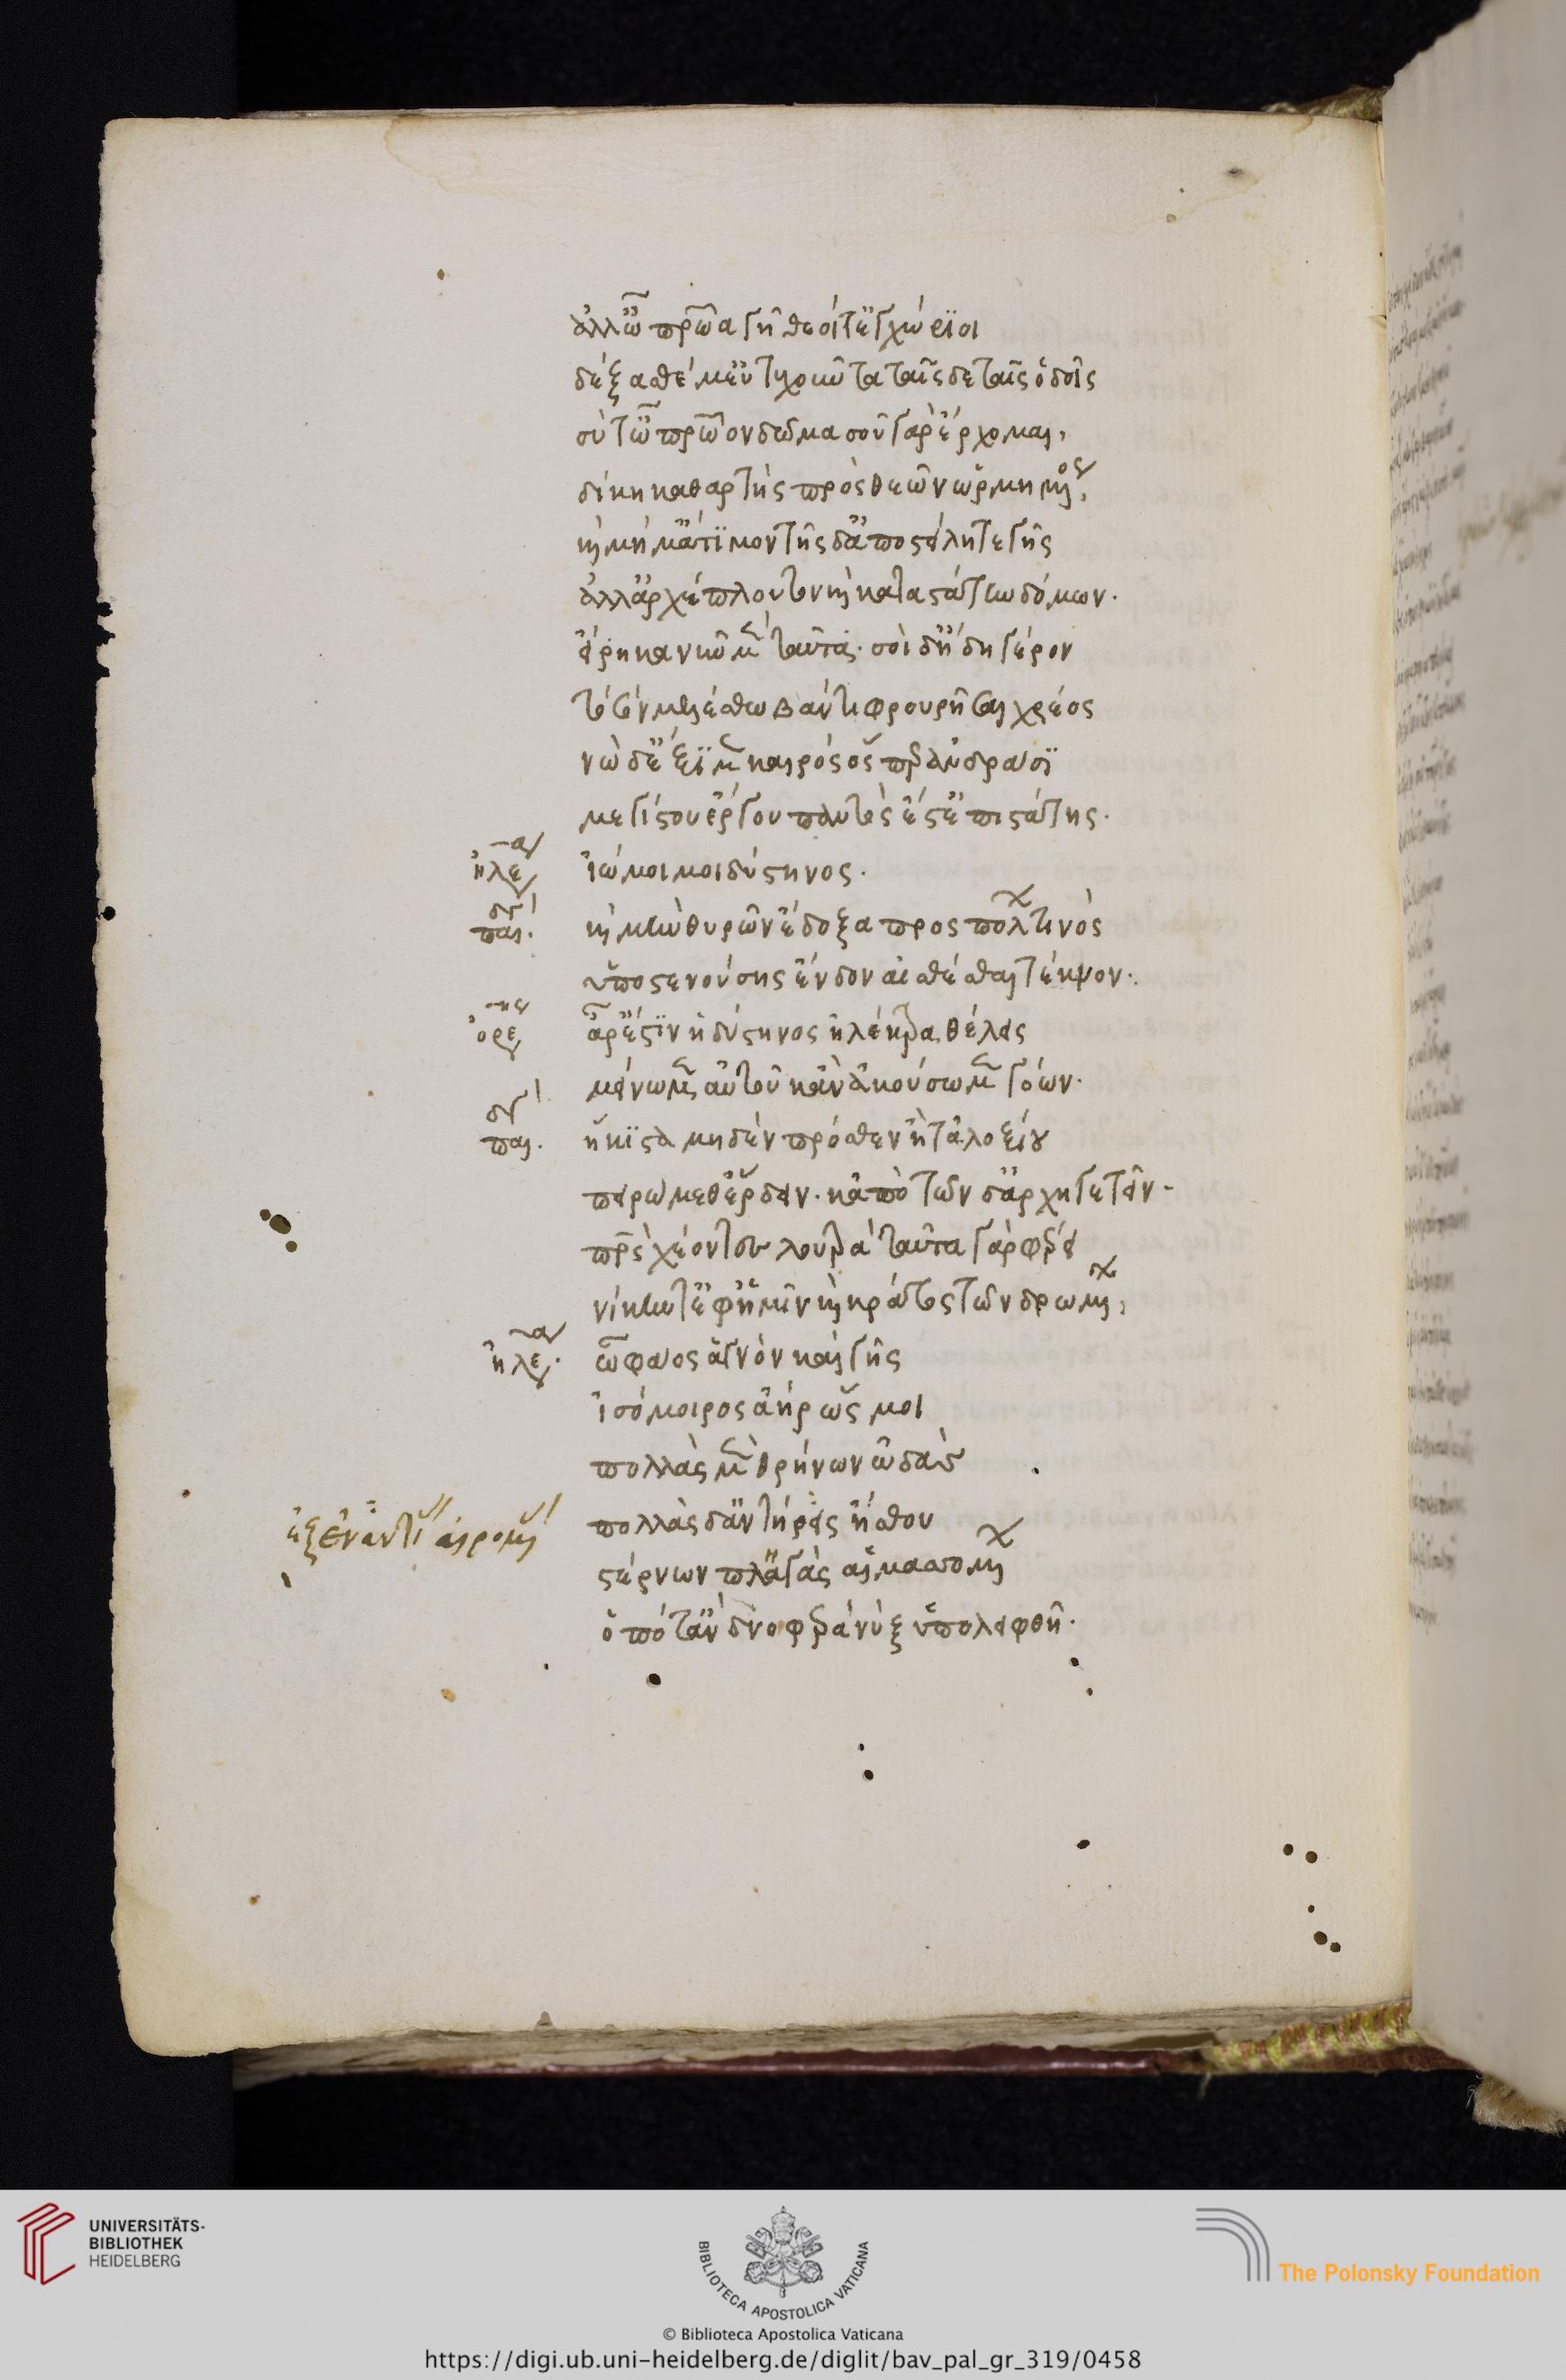 ἀλλ' ὦ πατρῴα γῆ θεοί τ' ἐγχώριοι
δέξασθέ μ' εὐτυχοῦντα ταῖσδε ταῖς ὁδοῖς
σύ τ' ὦ πατρῷον δῶμα σοῦ γὰρ ἔρχομαι,
δίκη καθαρτὴς πρὸς θεῶν ὡρμημένος,
καὶ μή μ' ἄτιμον τῆσδ' ἀποστείλητε γῆς
ἀλλ' ἀρχέπλουτον καὶ καταστάτην δόμων.
εἴρηκα νῦν μὲν ταῦτα. σοὶ δ' ἤδη γέρον
τὸ σὸν μελέσθω βάντι φρουρῆσαι χρέος
νὼ δ' ἔξιμεν καιρὸς ὅς περ ἀνδράσι
μεγίστου ἔργου παντός ἐστ' ἐπιστάτης.
ἠλέκτρα ἰώ μοι μοι δύστηνος.
παιδ. καὶ μὴν θυρῶν ἔδοξα προσπόλων τινὸς
ὑποστενούσης ἔνδον αἰσθέσθαι τέκνον.
ὀρέστης ἆρ' ἐστὶν ἡ δύστηνος ἠλέκτρα θέλεις
μείνωμεν αὐτοῦ κἀνακούσωμεν γόων.
παιδ. ἥκιστα μηδὲν πρόσθεν ἢ τὰ λοξίου
πειρώμεθ' ἔρδειν. κἀπὸ τῶνδ' ἀρχηγετεῖν.
πατρὸς χέοντες λουτρά ταῦτα γὰρ φέρει
νίκην τ' ἐφ' ἡμῖν καὶ κράτος τῶν δρωμένων,
ἠλέκτρα. ὦ φάος ἁγνὸν καὶ γῆς
ἰσόμοιρος ἀὴρ ὥς μοι
πολλὰς μὲν θρήνων ᾠδὰς
πολλὰς δ' ἀντήρεις ᾔσθου
στέρνων πλαγὰς αἱμασσομένων
ὁπόταν δνοφερὰ νὺξ ὑπολειφθῇ.
UNIVERSITÄTS-
BIBLIOTHEK
HEIDELBERG
BIBLIOTECA APOSTOLICA VATICANA
The Polonsky Foundation
© Biblioteca Apostolica Vaticana
https://digi.ub.uni-heidelberg.de/diglit/bav_pal_gr_319/0458